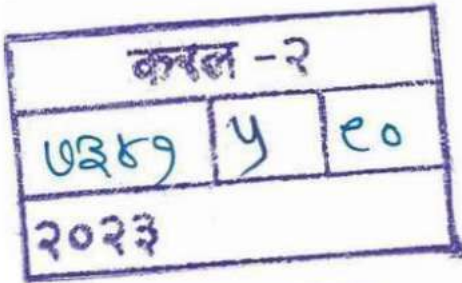 करल - २
७३४७ ५ ९०
२०२३